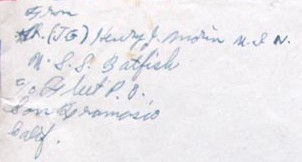 From
Lt. (JG) Henry J. Morin U.S.N.
U.S.S. Batfish
c/o Fleet P.O.
San Francisco
Calif.